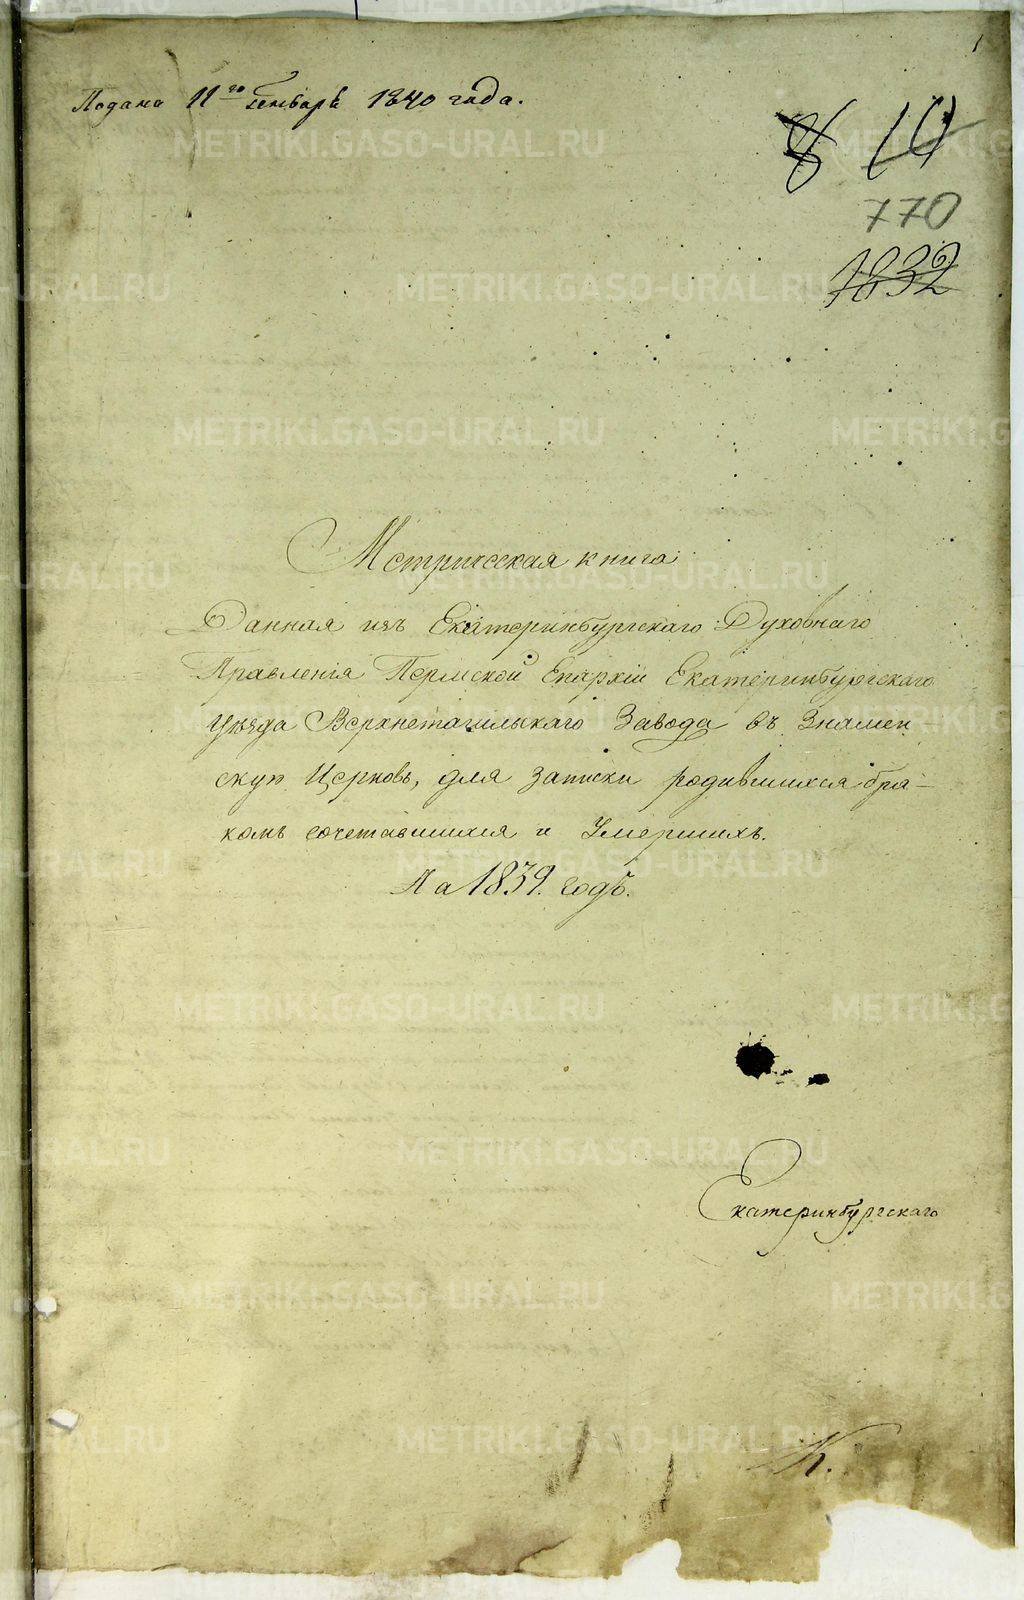 1
Подана 11го генваря 1840 года.
8 10
770
1832
Метрическая книга
Данная изъ Екатеринбургскаго Духовнаго
Правленія Пермской Епархіи Екатеринбургскаго
уѣзда Верхнетагильскаго Завода въ Знамен-
скую Церковь, для записки родившихся бра-
комъ сочетавшихся и Умершихъ.
На 1839. годъ.
Екатеринбургскаго
К.
METRIKI.GASO-URAL.RU